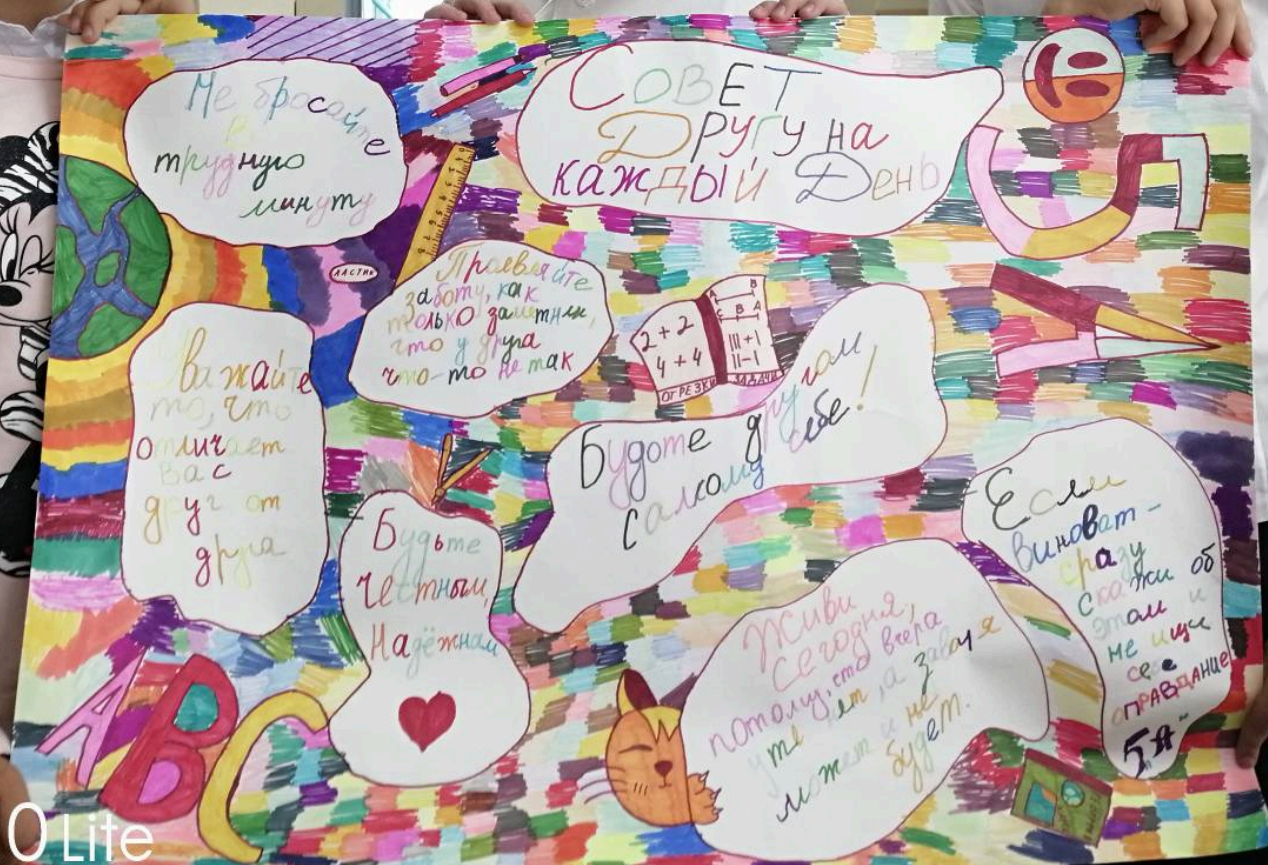 Не бросайте
в
трудную
минуту
Совет
Другу на
каждый День
ластик
Проевляйте
заботу, как
только заметили,
что у друга
что-то не так
2+2
4+4
III+1
II-1
ОТРЕЗКИ
ЗАДАЧИ
Уважайте
то, что
отличает
вас
друг от
друга
Будоте другом
самому себе!
Будьте
честным,
Надёжнам
Если
виноват-
сразу
скажи об
этом и
не ищи
себе
оправдание
5"я"
Живи
сегодня,
потому, что вчера
уже нет, а завтря
может и не
будет.
A B C
O Lite